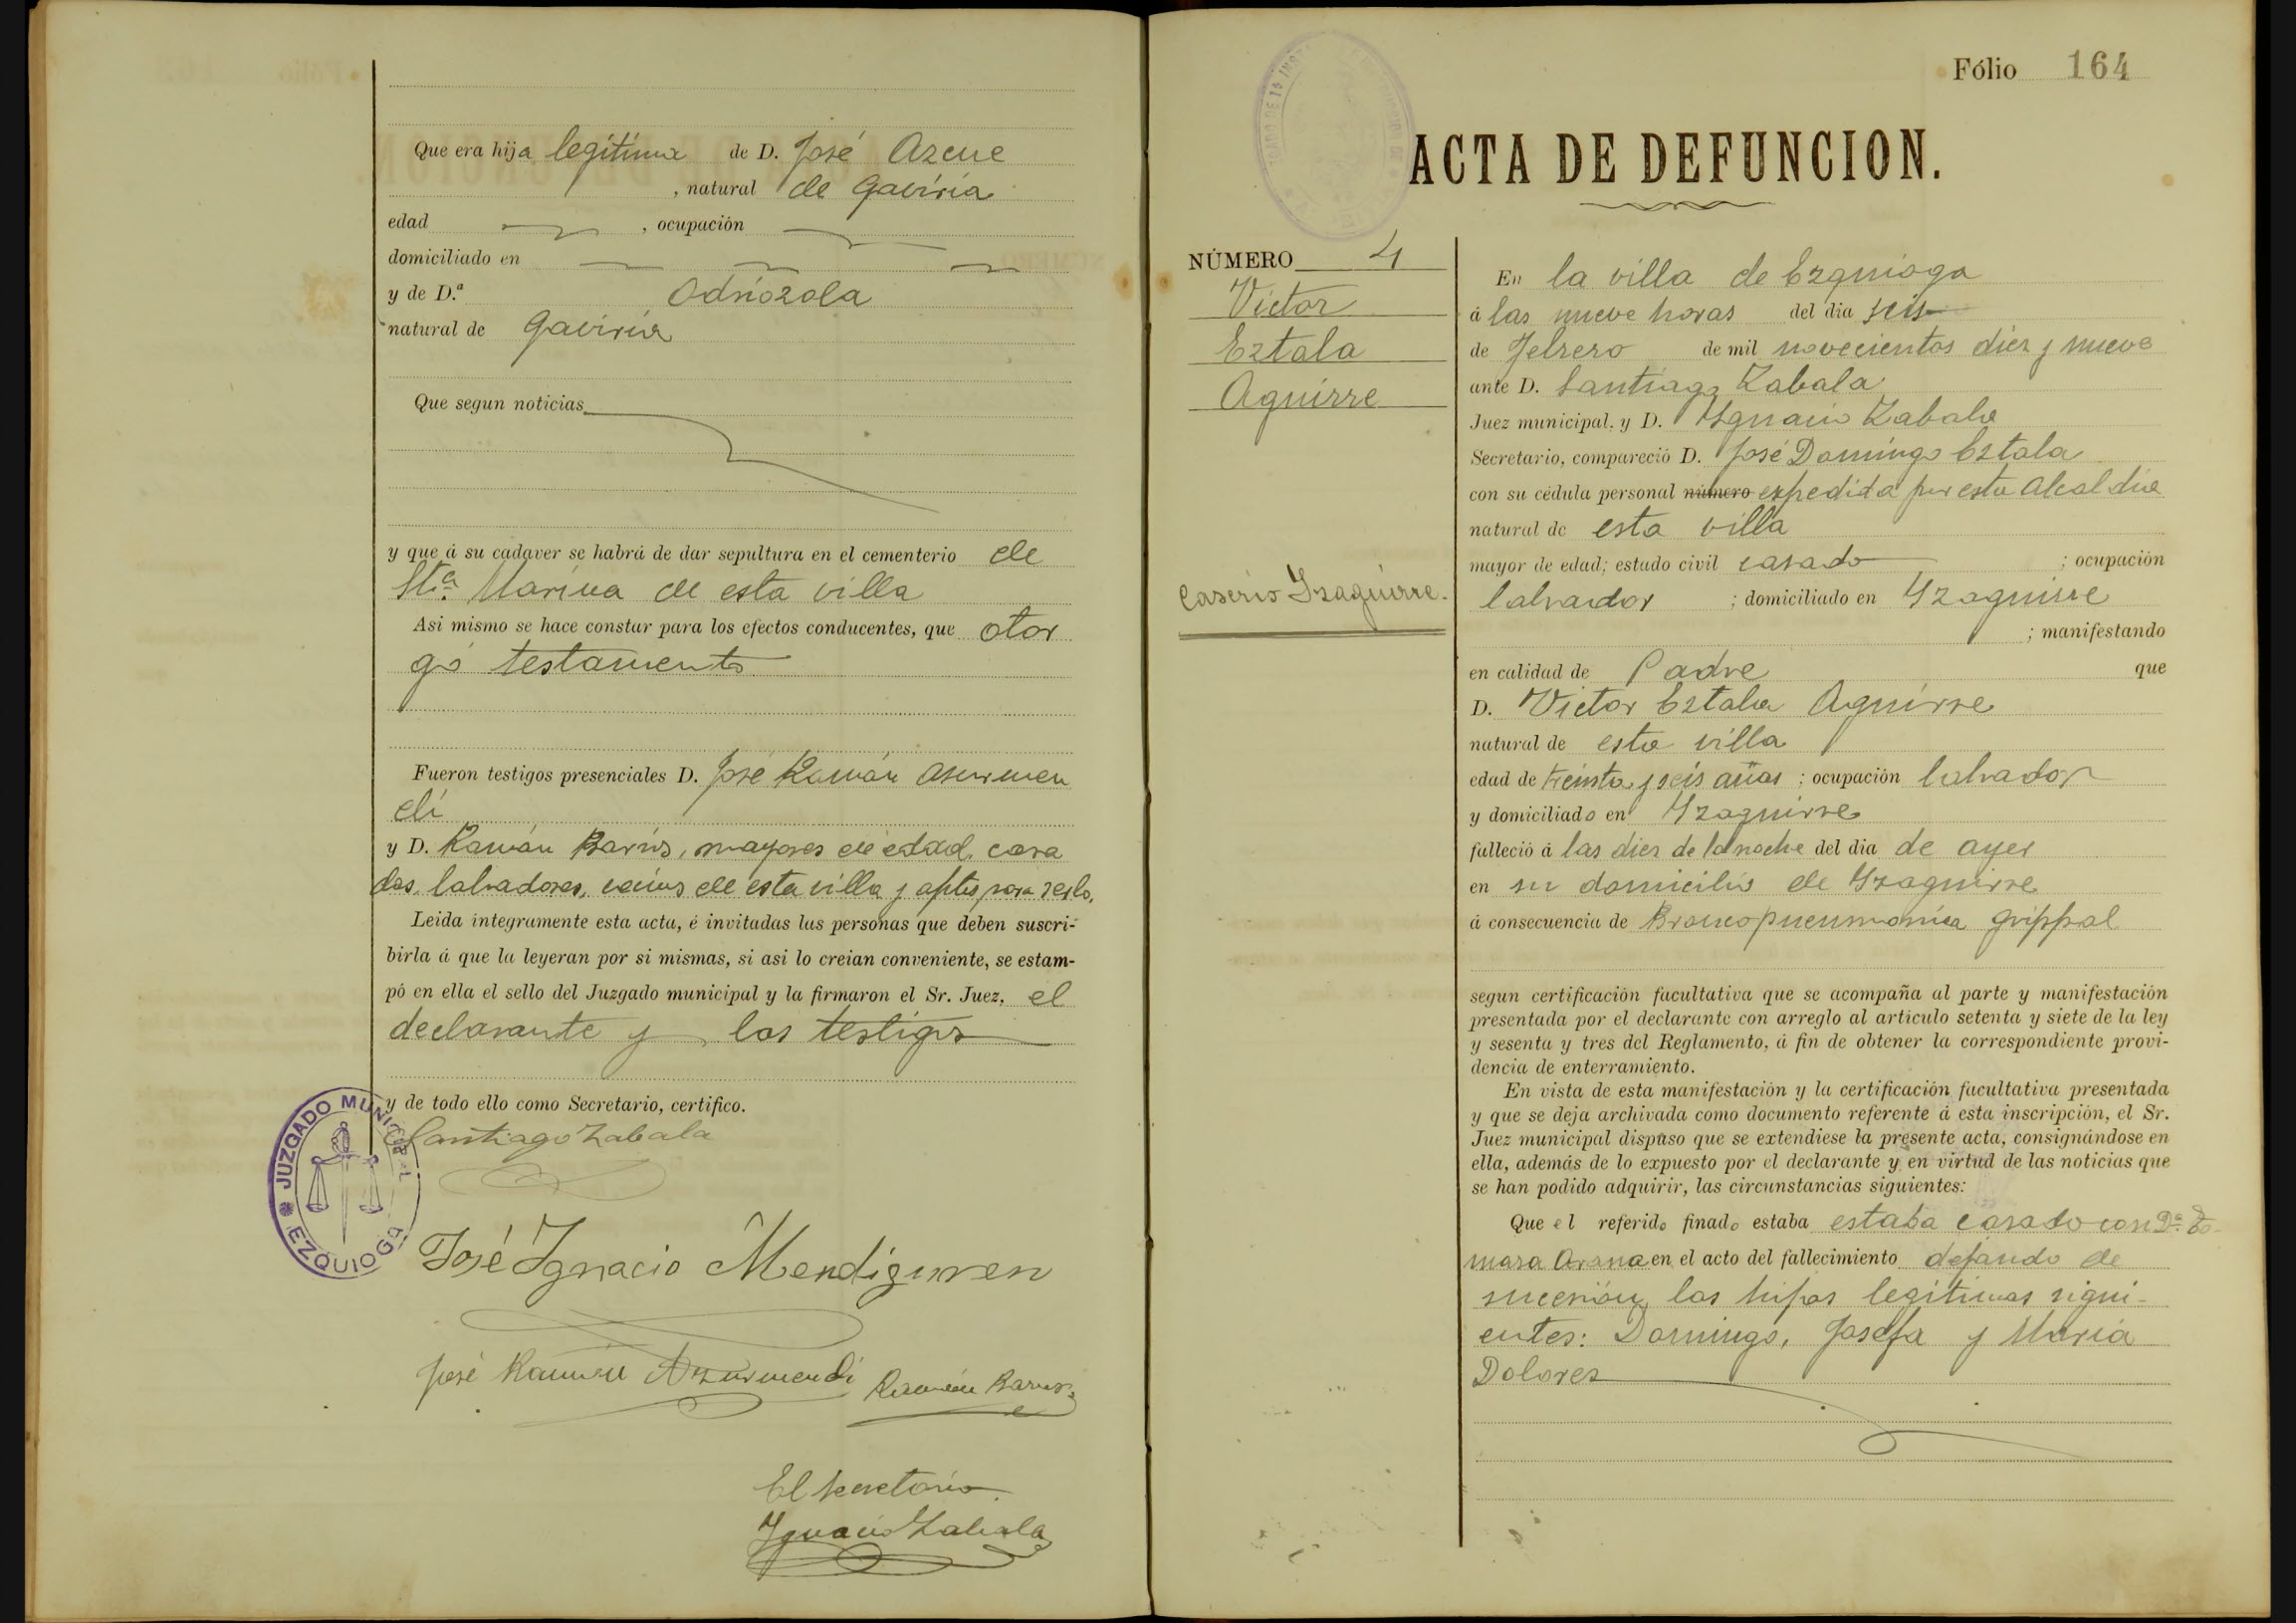 Que era hija legítima de D. José Azcue
, natural de Gaviria
edad , ocupación
domiciliado en
y de D.ª Odriozola
natural de Gaviria
Que segun noticias
y que á su cadaver se habrá de dar sepultura en el cementerio de
Sta. Marina de esta villa
Asi mismo se hace constar para los efectos conducentes, que otor
gó testamento
Fueron testigos presenciales D. José Ramón Asurmen
di
y D. Ramón Barrios, mayores de edad, casa
dos, labradores, vecinos de esta villa y aptos para serlo.
Leida íntegramente esta acta, é invitadas las personas que deben suscri-
birla á que la leyeran por si mismas, si asi lo creian conveniente, se estam-
pó en ella el sello del Juzgado municipal y la firmaron el Sr. Juez, el
declarante y los testigos
y de todo ello como Secretario, certifico.
JUZGADO MUNICIPAL
EZQUIOGA
Santiago Zabala
José Ignacio Mendiguren
José Ramón Azurmendi Ramón Barrios
El Secretario
Ignacio Zabala
Fólio 164
ACTA DE DEFUNCION.
NÚMERO 4
Victor
Eztala
Aguirre
Caserio Izaguirre.
En la villa de Ezquioga
á las nueve horas del dia seis
de Febrero de mil novecientos diez y nueve
ante D. Santiago Zabala
Juez municipal, y D. Ygnacio Zabala
Secretario, compareció D. José Domingo Eztala
con su cédula personal número expedida por esta Alcaldia
natural de esta villa
mayor de edad; estado civil casado ; ocupación
labrador ; domiciliado en Yzaguirre
; manifestando
en calidad de Padre que
D. Victor Eztala Aguirre
natural de esta villa
edad de treinta y seis años ; ocupación labrador
y domiciliado en Yzaguirre
falleció á las diez de la noche del dia de ayer
en su domicilio de Yzaguirre
á consecuencia de Broncopneumonia grippal
segun certificación facultativa que se acompaña al parte y manifestación
presentada por el declarante con arreglo al artículo setenta y siete de la ley
y sesenta y tres del Reglamento, á fin de obtener la correspondiente provi-
dencia de enterramiento.
En vista de esta manifestación y la certificación facultativa presentada
y que se deja archivada como documento referente á esta inscripción, el Sr.
Juez municipal dispuso que se extendiese la presente acta, consignándose en
ella, además de lo expuesto por el declarante y en virtud de las noticias que
se han podido adquirir, las circunstancias siguientes:
Que el referido finado estaba estaba casado con D.ª To-
masa Arana en el acto del fallecimiento dejando de
sucesión, los hijos legitimos sigui-
entes: Domingo, Josefa y Maria
Dolores